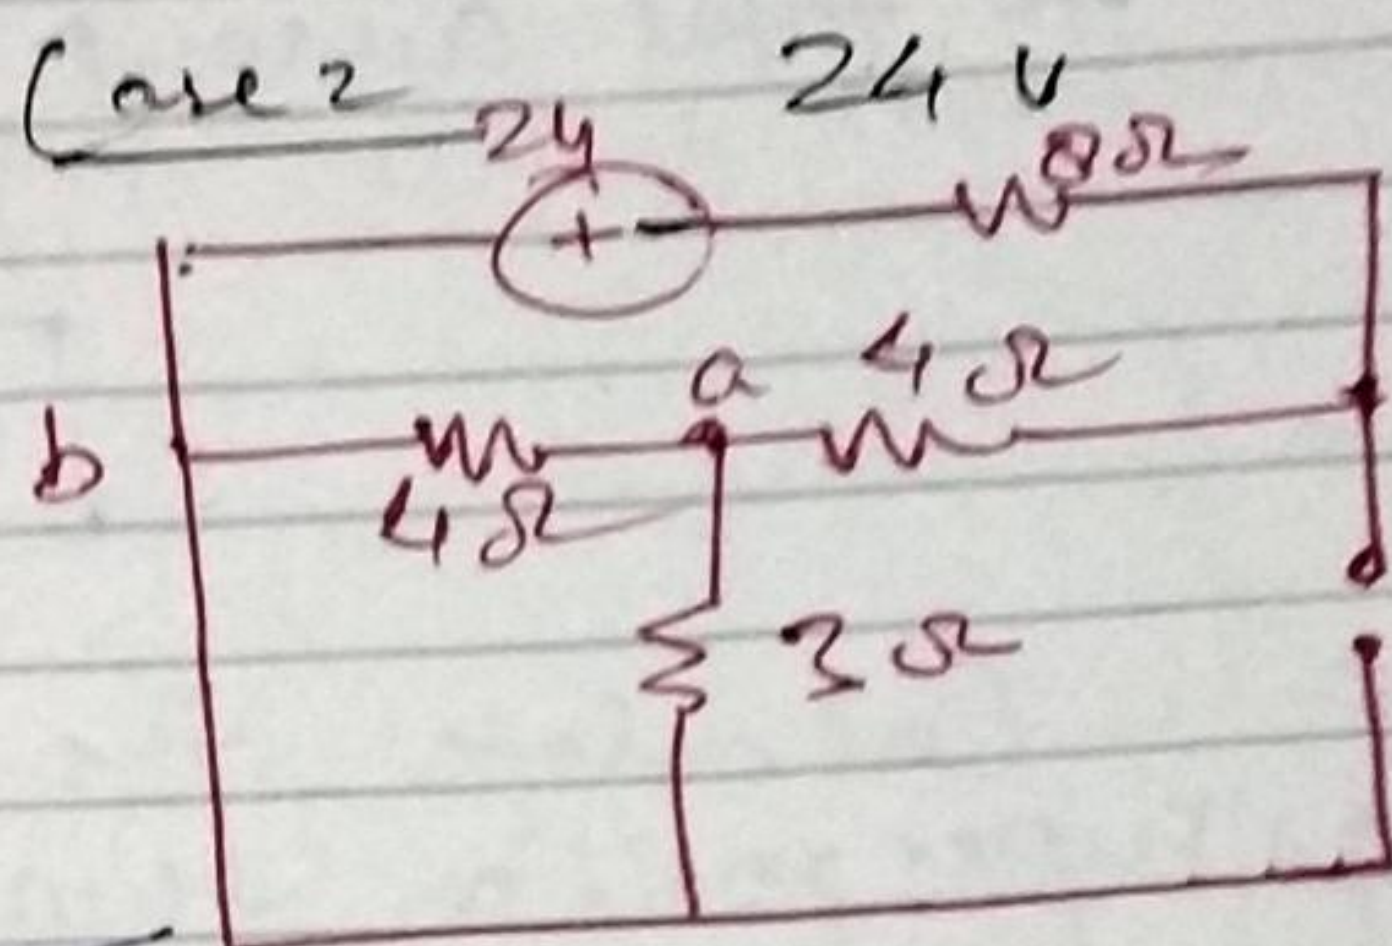 Case 2 24 V
24 8Ω
+ -
a 4Ω
b
4Ω
3Ω